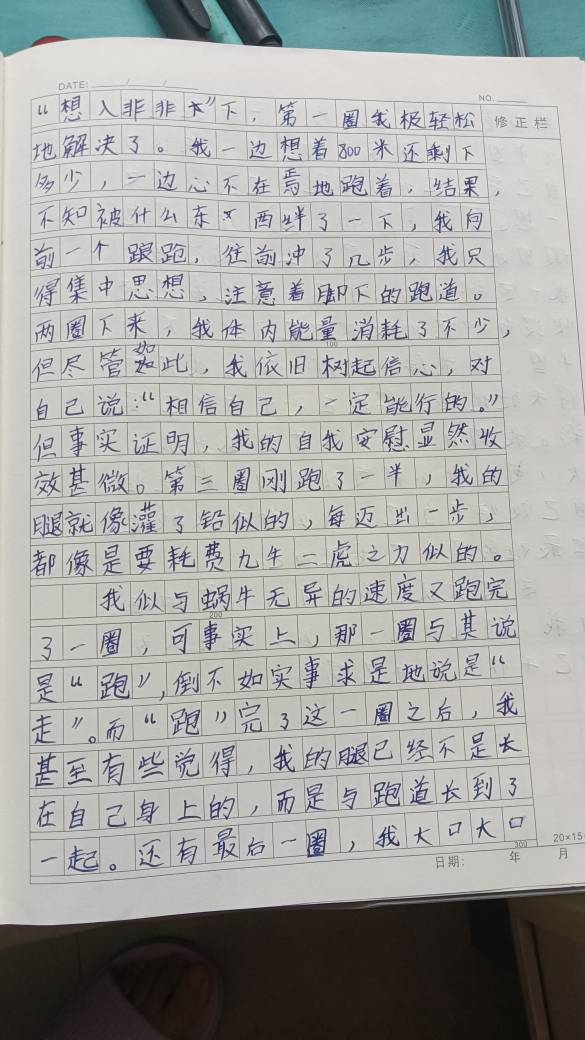 DATE: / /
NO.
修正栏
“想入非非”下，第一圈我极轻松
地解决了。我一边想着800米还剩下
多少，一边心不在焉地跑着，结果，
不知被什么东西绊了一下，我向
前一个踉跄，往前冲了几步，我只
得集中思想，注意着脚下的跑道。
两圈下来，我体内能量消耗了不少，
100
但尽管如此，我依旧树起信心，对
自己说：“相信自己，一定能行的。”
但事实证明，我的自我安慰显然收
效甚微。第三圈刚跑了一半，我的
腿就像灌了铅似的，每迈出一步，
都像是要耗费九牛二虎之力似的。
我似与蜗牛无异的速度又跑完
200
了一圈，可事实上，那一圈与其说
是“跑”，倒不如实事求是地说是“
走”。而“跑”完了这一圈之后，我
甚至有些觉得，我的腿已经不是长
在自己身上的，而是与跑道长到了
一起。还有最后一圈，我大口大口
300
20×15
日期： 年 月